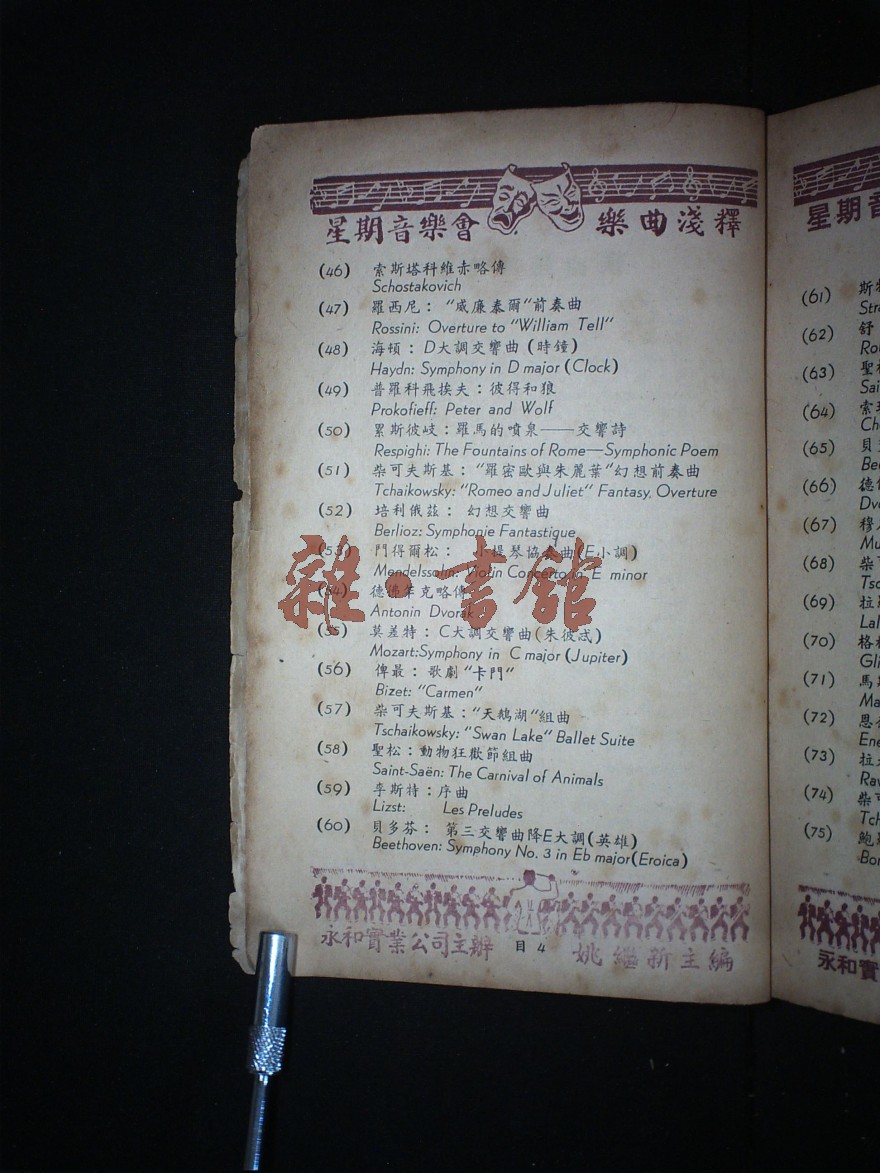 星期音樂會 樂曲淺釋
(46) 索斯塔科維赤略傳
Schostakovich
(47) 羅西尼："威廉泰爾"前奏曲
Rossini: Overture to "William Tell"
(48) 海頓：D大調交響曲(時鐘)
Haydn: Symphony in D major (Clock)
(49) 普羅科飛挨夫：彼得和狼
Prokofieff: Peter and Wolf
(50) 累斯彼岐：羅馬的噴泉——交響詩
Respighi: The Fountains of Rome—Symphonic Poem
(51) 柴可夫斯基："羅密歐與朱麗葉"幻想前奏曲
Tchaikowsky: "Romeo and Juliet" Fantasy, Overture
(52) 培利俄茲：幻想交響曲
Berlioz: Symphonie Fantastique
(53) 門得爾松：小提琴協奏曲(E小調)
Mendelssohn: Violin Concerto in E minor
(54) 德佛乍克略傳
Antonin Dvorak
(55) 莫差特：C大調交響曲(朱彼忒)
Mozart: Symphony in C major (Jupiter)
(56) 俾最：歌劇"卡門"
Bizet: "Carmen"
(57) 柴可夫斯基："天鵝湖"組曲
Tschaikowsky: "Swan Lake" Ballet Suite
(58) 聖松：動物狂歡節組曲
Saint-Saën: The Carnival of Animals
(59) 李斯特：序曲
Lizst: Les Preludes
(60) 貝多芬：第三交響曲降E大調(英雄)
Beethoven: Symphony No. 3 in Eb major (Eroica)
永和實業公司主辦 目 4 姚繼新主編
雜·書館
星期
(61) 斯
(62) 舒
(63) 聖
Sai
(64) 索
(65) 貝
(66) 德
Dvo
(67) 穆
Mu
(68) 柴
Tsc
(69) 拉
Lal
(70) 格
Gli
(71) 馬
Ma
(72) 恩
Ene
(73) 拉
Rav
(74) 柴
Tch
(75) 鮑
Bor
永和實